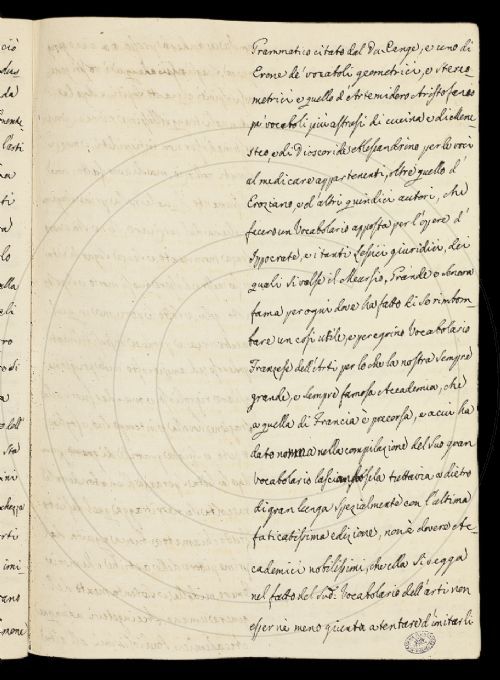 ciò
dus
da
mente
l'arti
na
ti
a
lo
alla
eli
tro
o di
a
o loll'
sta
ini
chezza
arti
imi
zano
mone
Grammatico citato dal Du Cange, e uno di
Erone de' vocaboli geometrici, e stereo
metrici e quello d'Artemidoro Aristofaneo
pe' vocaboli più astrosi di cucina e di Mene
steo, e di Dioscoride Alessandrino per le voci
al medicare appartenenti, oltre quello d'
Eroziano, e d'altri quindici autori, che
facero un Vocabolario apposta per l'opere d'
Ippocrate, e i tanti Lessici giuridici, dei
quali si valse il Meursio. Grande e sonora
fama per ogni dove ha fatto di se rimbom-
bare un così utile, e peregrino Vocabolario
Franzese dell'Arti per lo che la nostra sempre
grande, e sempre famosa Accademia, che
a quella di Francia è precorsa, e a cui ha
dato norma nella compilazione del suo gran
vocabolario lasciandosela tuttavia a dietro
di gran lunga spezialmente con l'ultima
faticatissima edizione, non è dovere Ac-
cademici nobilissimi, che ella si vegga
nel fatto del Sud. Vocabolario dell'arti non
esser nè meno giunta a tentare d'imitarli